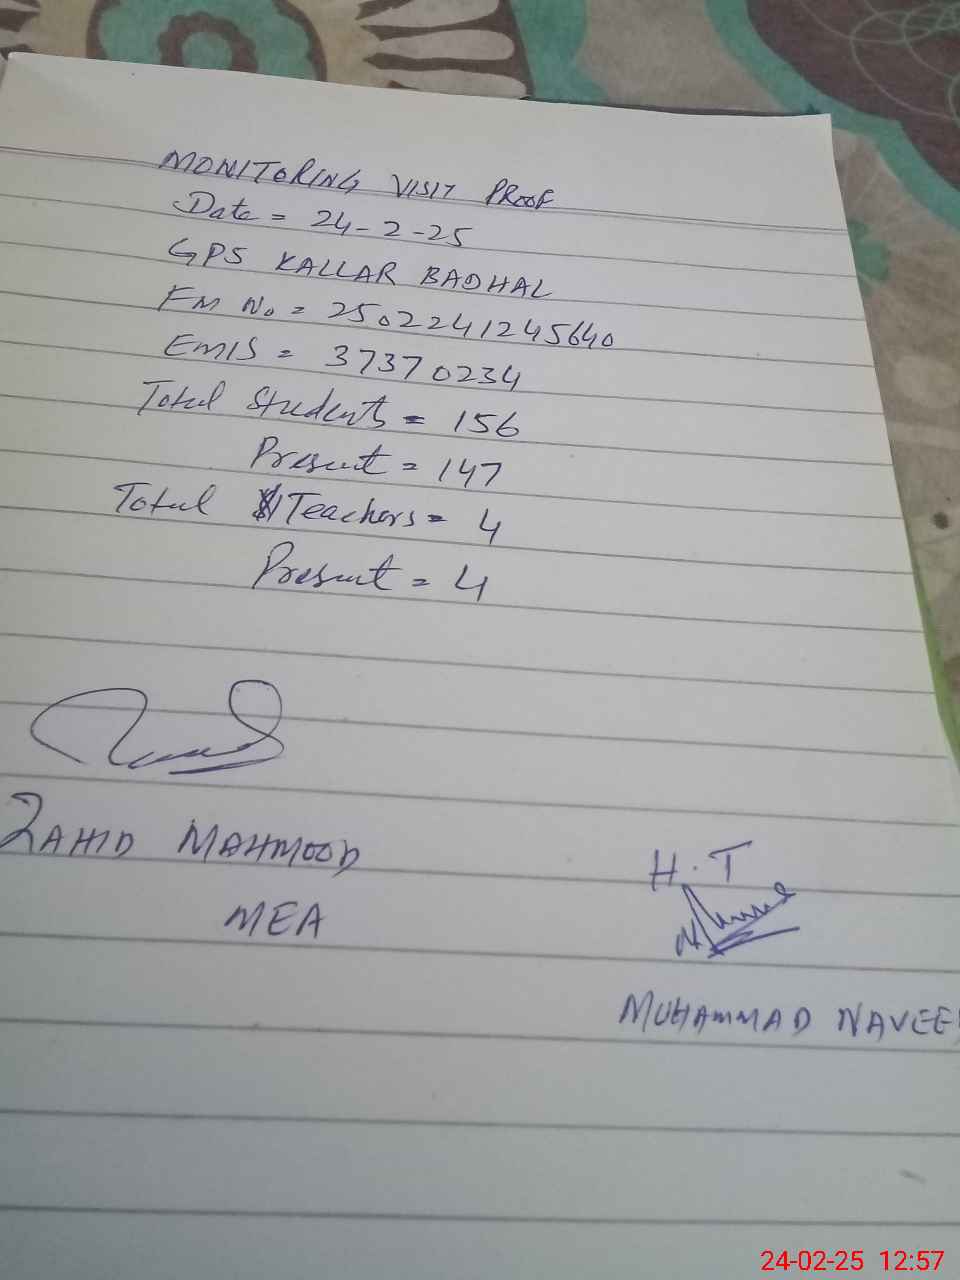 MONITORING VISIT PROOF
Date = 24-2-25
GPS KALLAR BADHAL
FM No = 2502241245640
EMIS = 37370234
Total Students = 156
Present = 147
Total Teachers = 4
Present = 4
ZAHID MAHMOOD
MEA
H.T
MUHAMMAD NAVEE
24-02-25 12:57